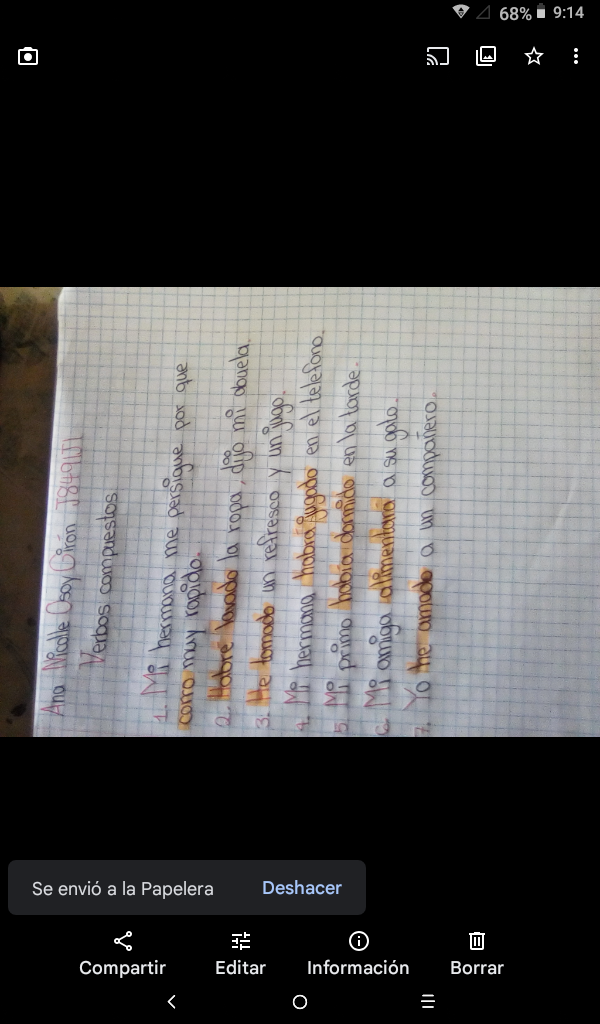 68% 9:14
Ana Nicalle Osoy Girón J849IJ1
Verbos compuestos
1. Mi hermana me persigue por que
corro muy rapido.
2. Habré lavado la ropa, dijo mi abuela.
3. He tomado un refresco y un jugo.
4. Mi hermana habrá jugado en el telefono.
5 Mi primo había dormido en la tarde.
6. Mi amiga alimentará a su gato.
7. Yo he amado a un compañero.
Se envió a la Papelera Deshacer
Compartir Editar Información Borrar